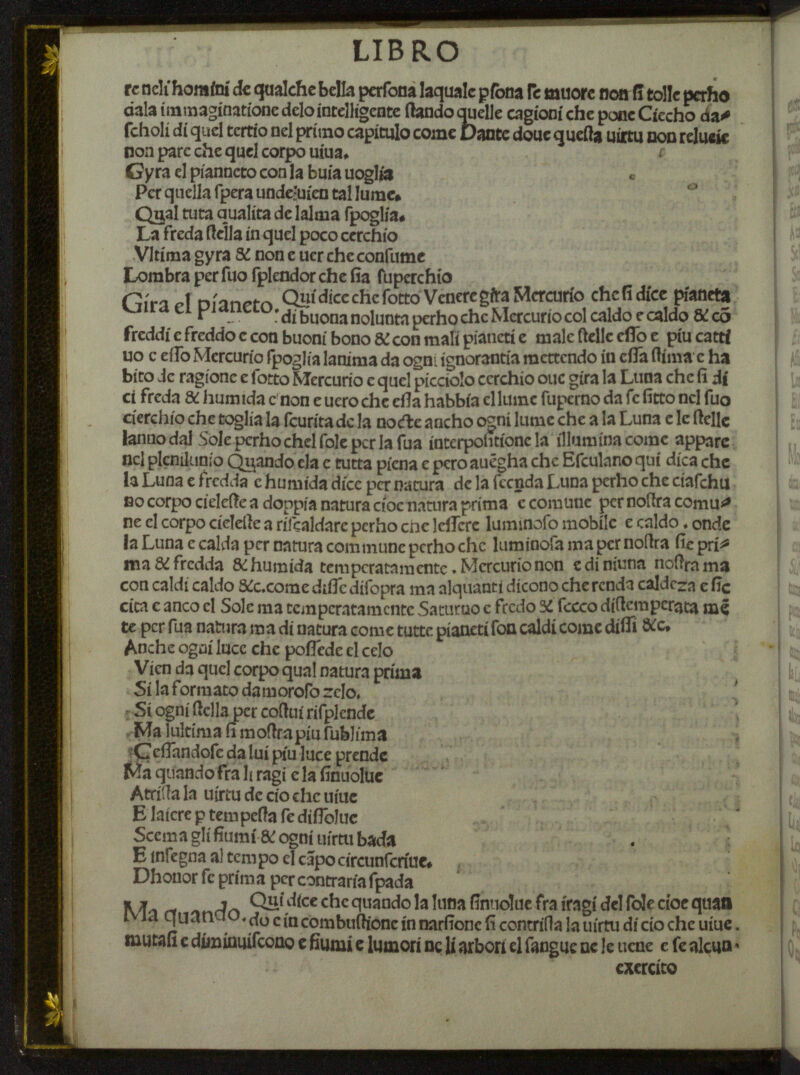 LIBRO
re neli homini de qualche bella persona laquale psona se muore non si tolle perho
dala immaginatione delo intelligente stando quelle cagioni che pone Ciecho da⸗
scholi di quel tertio nel primo capitulo come Dante doue questa uirtu non relucie
non pare che quel corpo uiua.
Gyra el pianneto con la buia uoglia
Per quella spera unde uien tal lume.
Qual tuta qualita de lalma spoglia.
La freda stella in quel poco cerchio
Vltima gyra & non e uer che consume
Lombra per suo splendor che sia superchio
Gira el pianeto. Qui dice che sotto Venere gira Mercurio che si dice pianeta
di buona nolunta perho che Mercurio col caldo e caldo & cō
freddi e freddo e con buoni bono & con mali pianeti e male stelle esso e piu catti
uo e esso Mercurio spoglia lanima da ogni ignorantia mettendo in essa stima e ha
bito de ragione e sotto Mercurio e quel picciolo cerchio oue gira la Luna che si di
ci freda & humida e non e uero che essa habbia el lume superno da se sitto nel suo
cierchio che toglia la scurita de la nocte ancho ogni lume che a la Luna e le stelle
lanno dal Sole perho chel sole per la sua interpositione la illumina come appare
nel plenilunio Quando ela e tutta piena e pero auēgha che Esculano qui dica che
la Luna e fredda e humida dice per natura de la secnda Luna perho che ciaschu
no corpo cieleste a doppia natura cioe natura prima e comune per nostra comu⸗
ne el corpo cieleste a riscaldare perho che lessere luminoso mobile e caldo. onde
la Luna e calda per natura commune perho che luminosa ma per nostra sie pri⸗
ma & fredda & humida temperatamente. Mercurio non e di niuna nostra ma
con caldi caldo &c. come disse disopra ma alquanti dicono che renda caldeza e sic
cita e anco el Sole ma temperatamente Saturno e fredo & secco distemperata mē
te per sua natura ma di natura come tutte pianeti son caldi come dissi &c.
Anche ogni luce che possede el celo
Vien da quel corpo qual natura prima
Si la formato damoroso zelo.
Si ogni stella per costui risplende
Ma lultima si mostra piu sublima
Cessandose da lui piu luce prende
Ma quando fra li ragi e la sinuolue
Atrista la uirtu de cio che uiue
E laiere p tempesta se dissolue
Scema gli fiumi & ogni uirtu bada
E insegna al tempo el cāpo circunscriue.
Dhonor se prima per contraria spada
Ma quando. Qui dice che quando la luna sinuolue fra iragi del sole cioe quan
do e in combustione in narsione si contrista la uirtu di cio che uiue.
mutasi e diminuiscono e fiumi e lumori ne li arbori el sangue ne le uene e se alcun
exercito